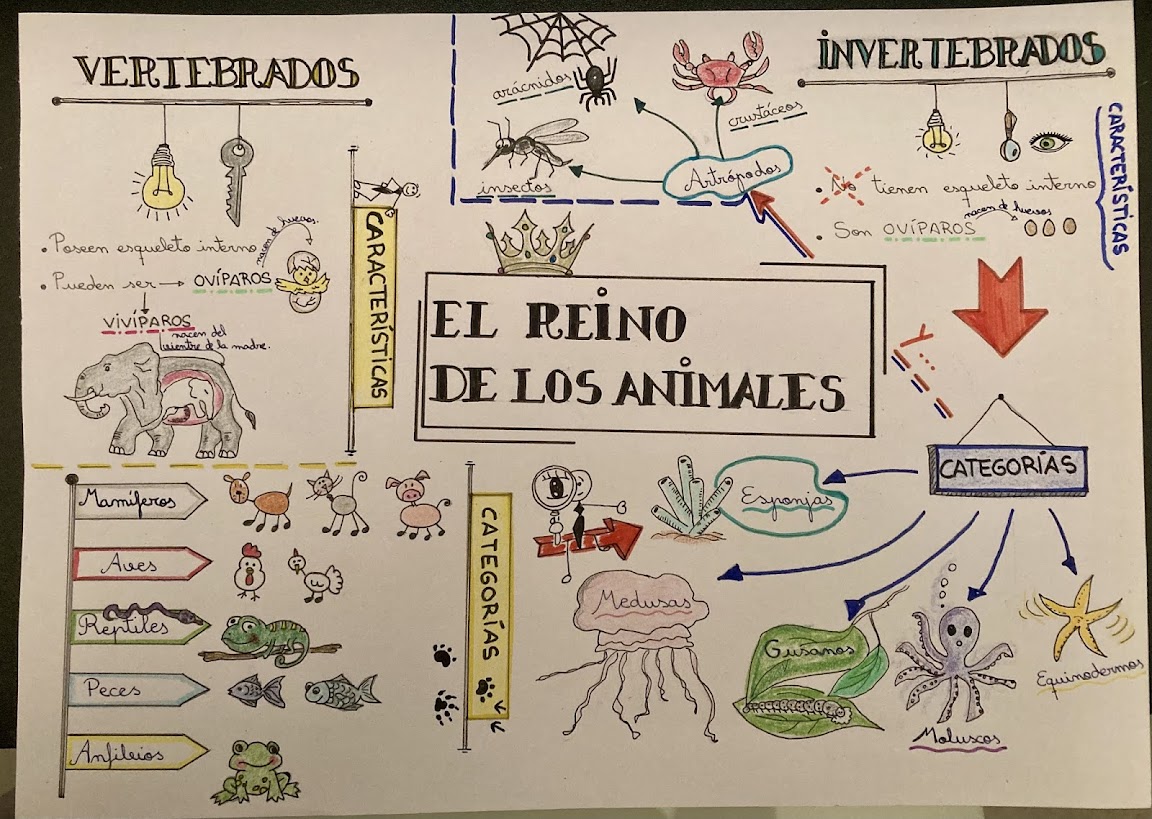 VERTEBRADOS
• Poseen esqueleto interno
• Pueden ser → OVÍPAROS
nacen de huevos.
VIVÍPAROS
nacen del
vientre de la madre.
CARACTERÍSTICAS
Mamíferos
Aves
Reptiles
Peces
Anfibios
CATEGORÍAS
EL REINO
DE LOS ANIMALES
arácnidos
crustáceos
insectos
Artrópodos
INVERTEBRADOS
CARACTERÍSTICAS
• No tienen esqueleto interno
• Son OVÍPAROS
nacen de huevos
Y...
CATEGORÍAS
Esponjas
Medusas
Gusanos
Moluscos
Equinodermos